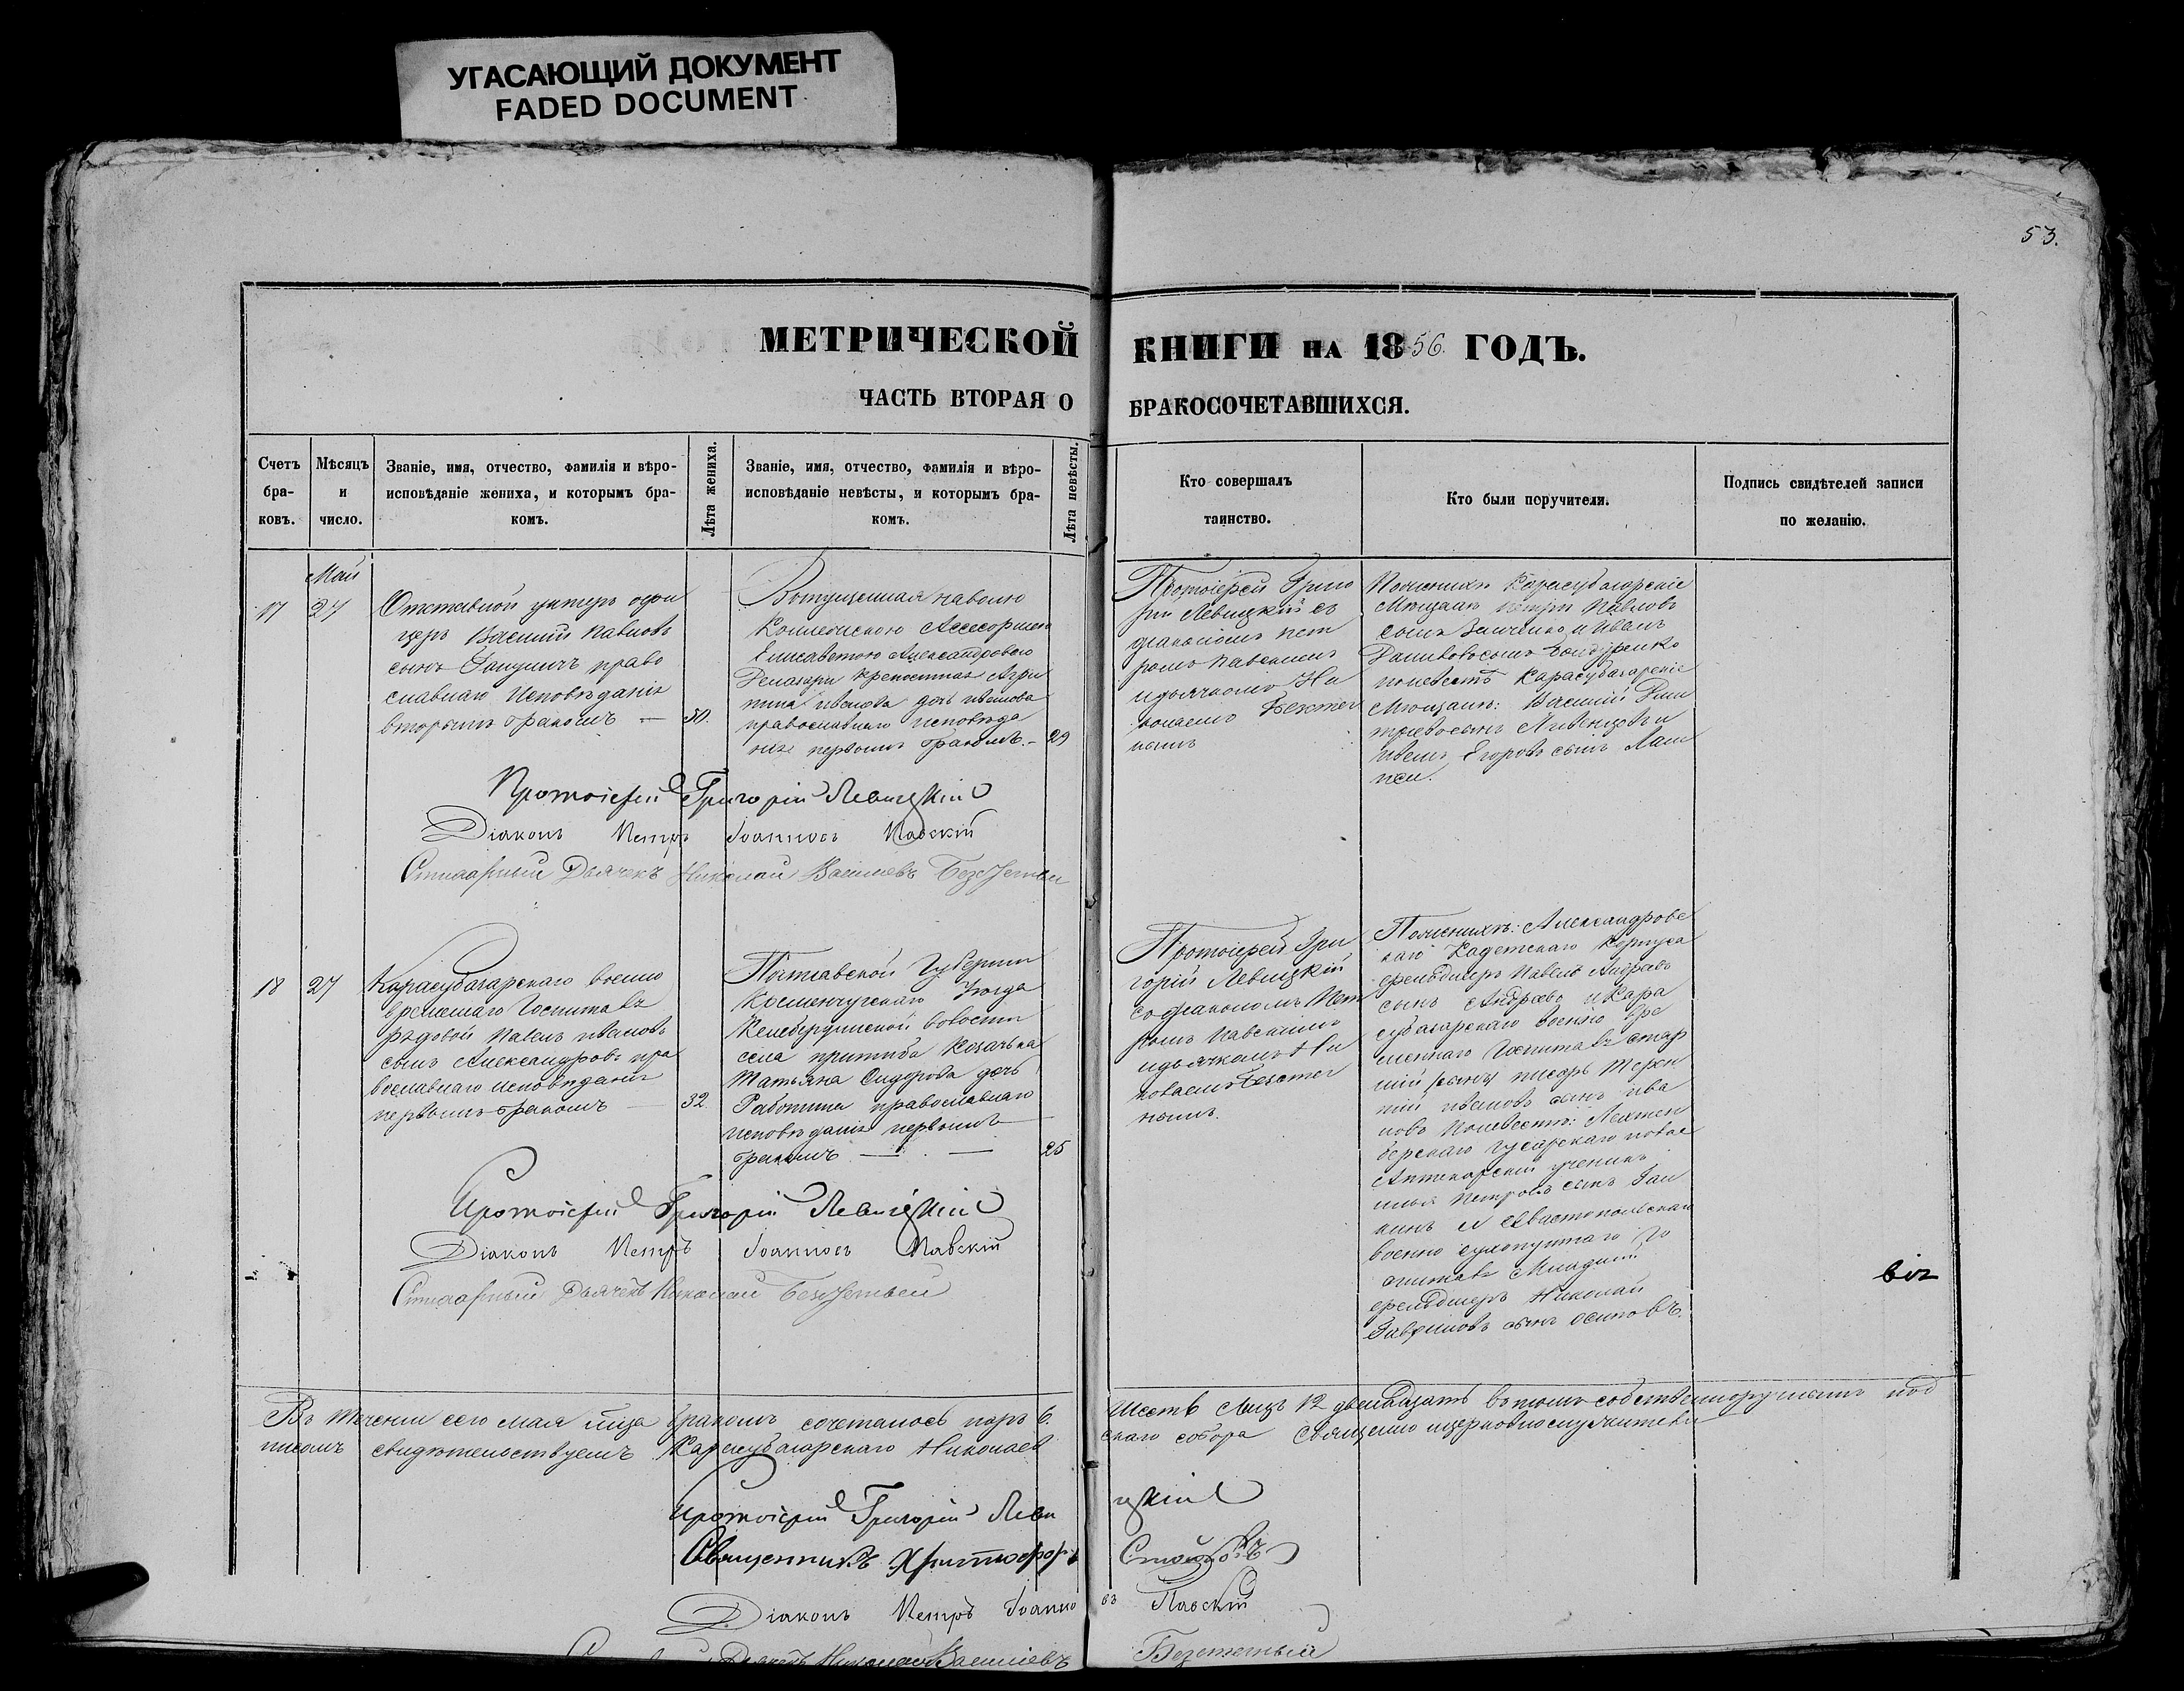 УГАСАЮЩИЙ ДОКУМЕНТ
FADED DOCUMENT
53.
МЕТРИЧЕСКОЙ КНИГИ НА 1856. ГОДЪ.
ЧАСТЬ ВТОРАЯ О БРАКОСОЧЕТАВШИХСЯ.
Счетъ
бра-
ковъ.
Мѣсяцъ
и
число.
Званіе, имя, отчество, фамилія и вѣро-
исповѣданіе жениха, и которымъ бра-
комъ.
Лѣта жениха.
Званіе, имя, отчество, фамилія и вѣро-
исповѣданіе невѣсты, и которымъ бра-
комъ.
Лѣта невѣсты.
Кто совершалъ
таинство.
Кто были поручители.
Подпись свидѣтелей записи
по желанію.
17
Май
27
Отставной унтеръ офи
церъ Василій Павловъ
сынъ право
славнаго Исповѣданія
вторымъ бракомъ —
50.
Вотпущенная наволю
Коллежскою Ассесоршею
Елисаветою Александровою
крепостная Агри
пина Иванова дочь Иванова
православнаго исповѣда
нія первымъ бракомъ. —
29
Протоіерей Григо
рій Левицкій съ
діакономъ Пет
ромъ Павскимъ
и дьячкомъ Ни
колаемъ Безсмет
нымъ
Поженихѣ Карасубазарскіе
Мѣщане Петръ Павловъ
сынъ и Иванъ
сынъ Бондаренко
поневестѣ Карасубазарскіе
Мѣщане: Василій Дми
тріевъ сынъ и
Иванъ Егоровъ сынъ Лап
Протоіерей Григорій Левицкій
Діаконъ Петръ Іоанновъ Павскій
Дьячекъ Николай Васильевъ
18
27
Карасубазарскаго военно
временнаго Госпиталя
рядовой Павелъ Ивановъ
сынъ Александровъ пра
вославнаго исповѣданія
первымъ бракомъ —
32.
Полтавской Губерніи
Кременчугскаго Уѣзда
Келебердинской волости
села казачька
Татьяна Сидорова дочь
православнаго
исповѣданія первымъ
бракомъ — . —
25
Протоіерей Гри
горій Левицкій
со діакономъ Пет
ромъ Павскимъ
и дьячкомъ Ни
колаемъ Безсмет
нымъ.
Поженихѣ: Александровс
каго Кадетскаго Корпуса
фельдшеръ Павелъ Андреевъ
сынъ Андреевъ и Кара
субазарскаго военно вре
меннаго Госпиталя стар
шій писарь Терен
тій Ивановъ сынъ Ива
новъ Поневестѣ: Лехтен
бергскаго Гусарскаго полка
Аптекарскій ученикъ
Илья Петровъ сынъ Гал
кинъ и Севастопольскаго
военно сухопутнаго Го
спиталя Младшій
фельдшеръ Николай
Гавриловъ сынъ Осиповъ.
Протоіерей Григорій Левицкій
Діаконъ Петръ Іоанновъ Павскій
Дьячекъ Николай
Въ теченіи сего мая мѣсяца бракомъ сочеталось паръ 6. шесть Лицъ 12 двенадцать въ томъ собственноручнымъ под
писомъ свидѣтельствуемъ Карасубазарскаго Николаевскаго собора Священно ицерковнослужители
Протоіерей Григорій Левицкій
Священникъ Христофоръ
Діаконъ Петръ Іоанновъ Павскій
Дьячекъ Николай Васильевъ